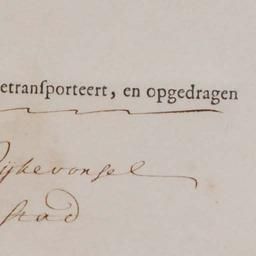 etranſporteert, en opgedragen
ijkevonsel
stad